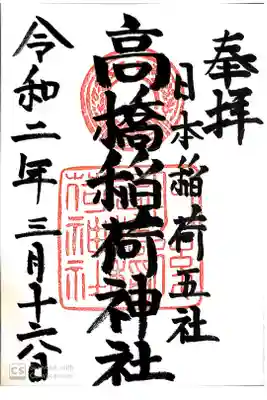 奉拝
日本稲荷五社
高橋稲荷神社
令和二年三月十六日
CS